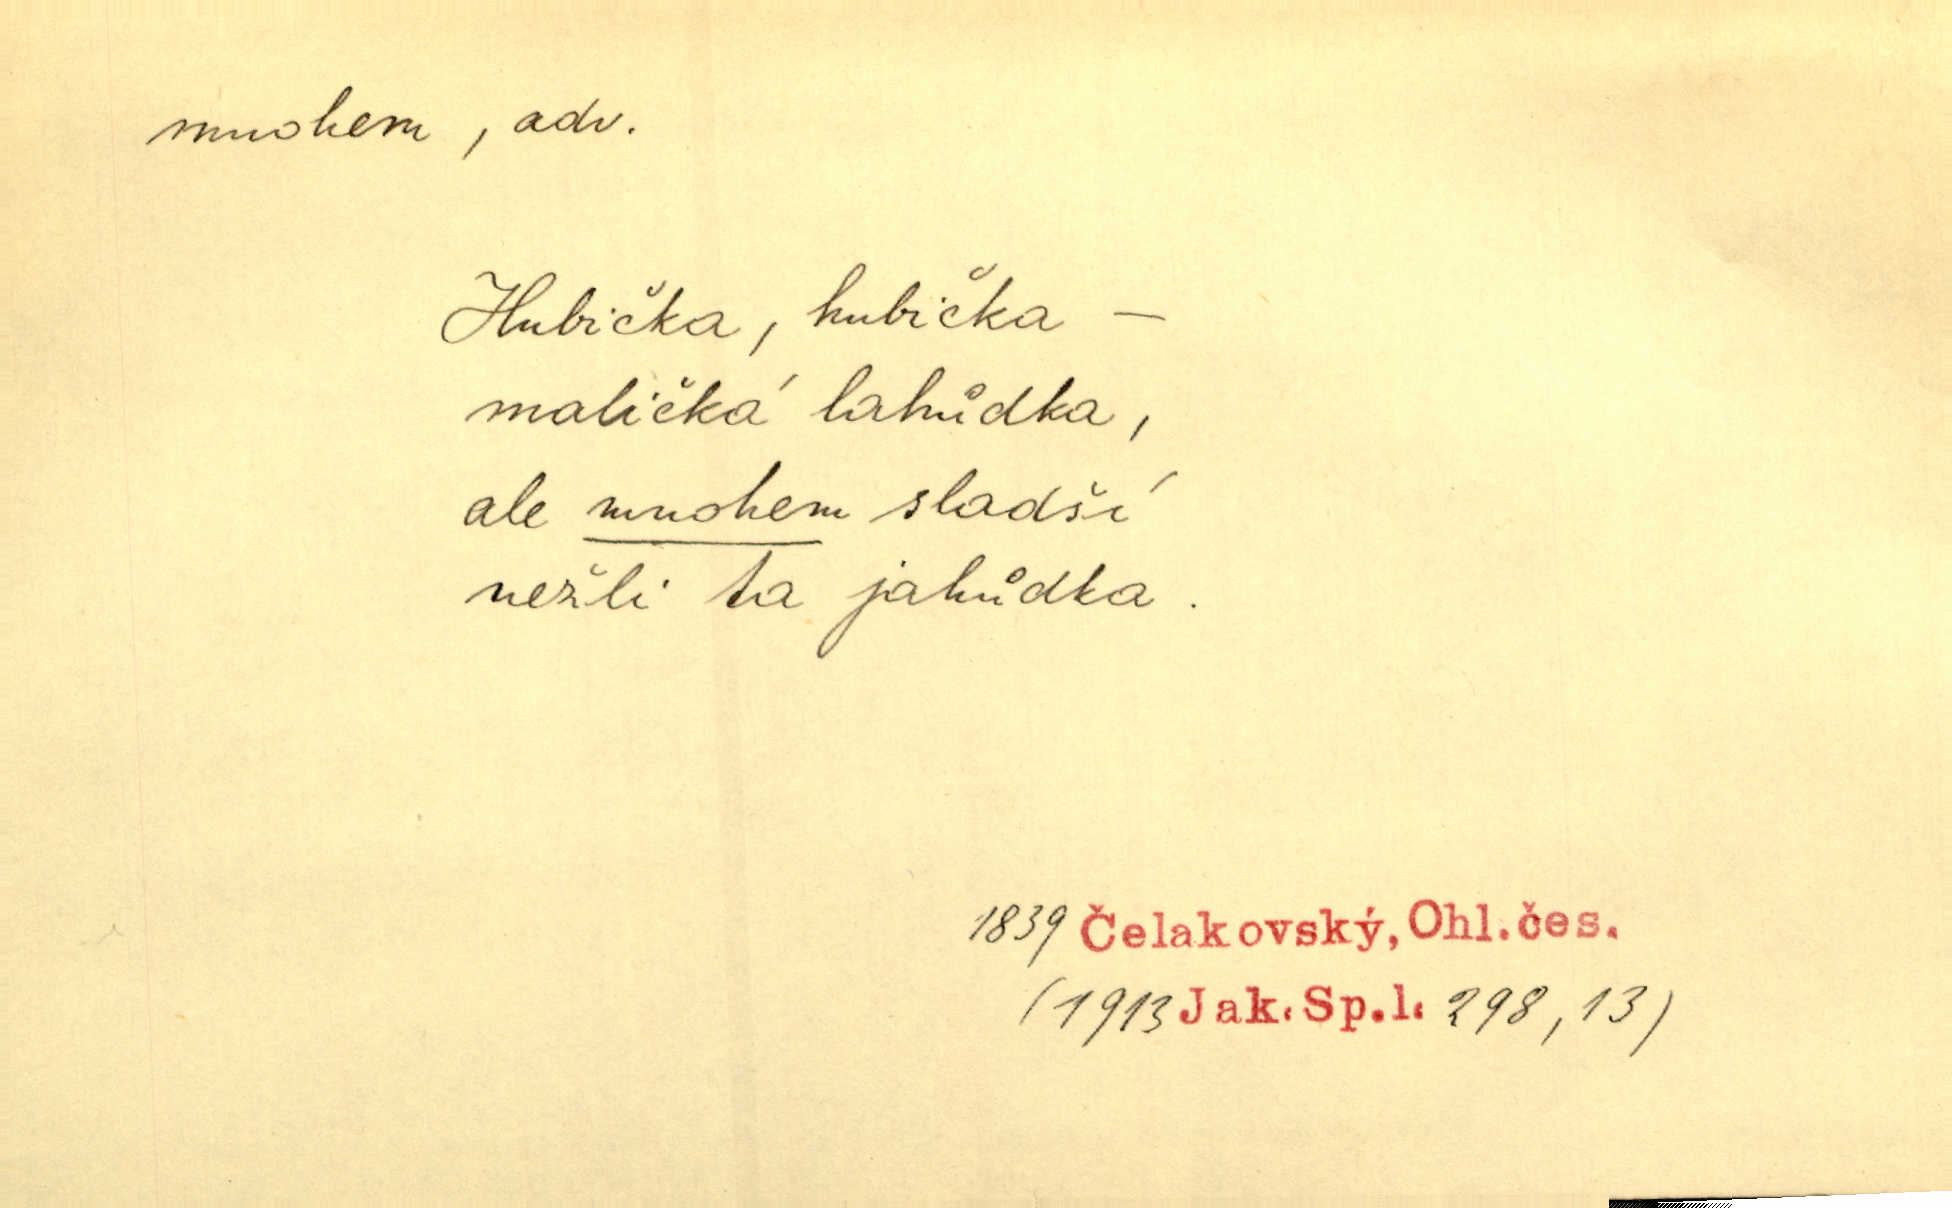 mnohem, adv.
Hubička, hubička —
maličká lahůdka,
ale mnohem sladší
nežli ta jahůdka.
1839 Čelakovský, Ohl.čes.
(1913 Jak. Sp.l. 298, 13)